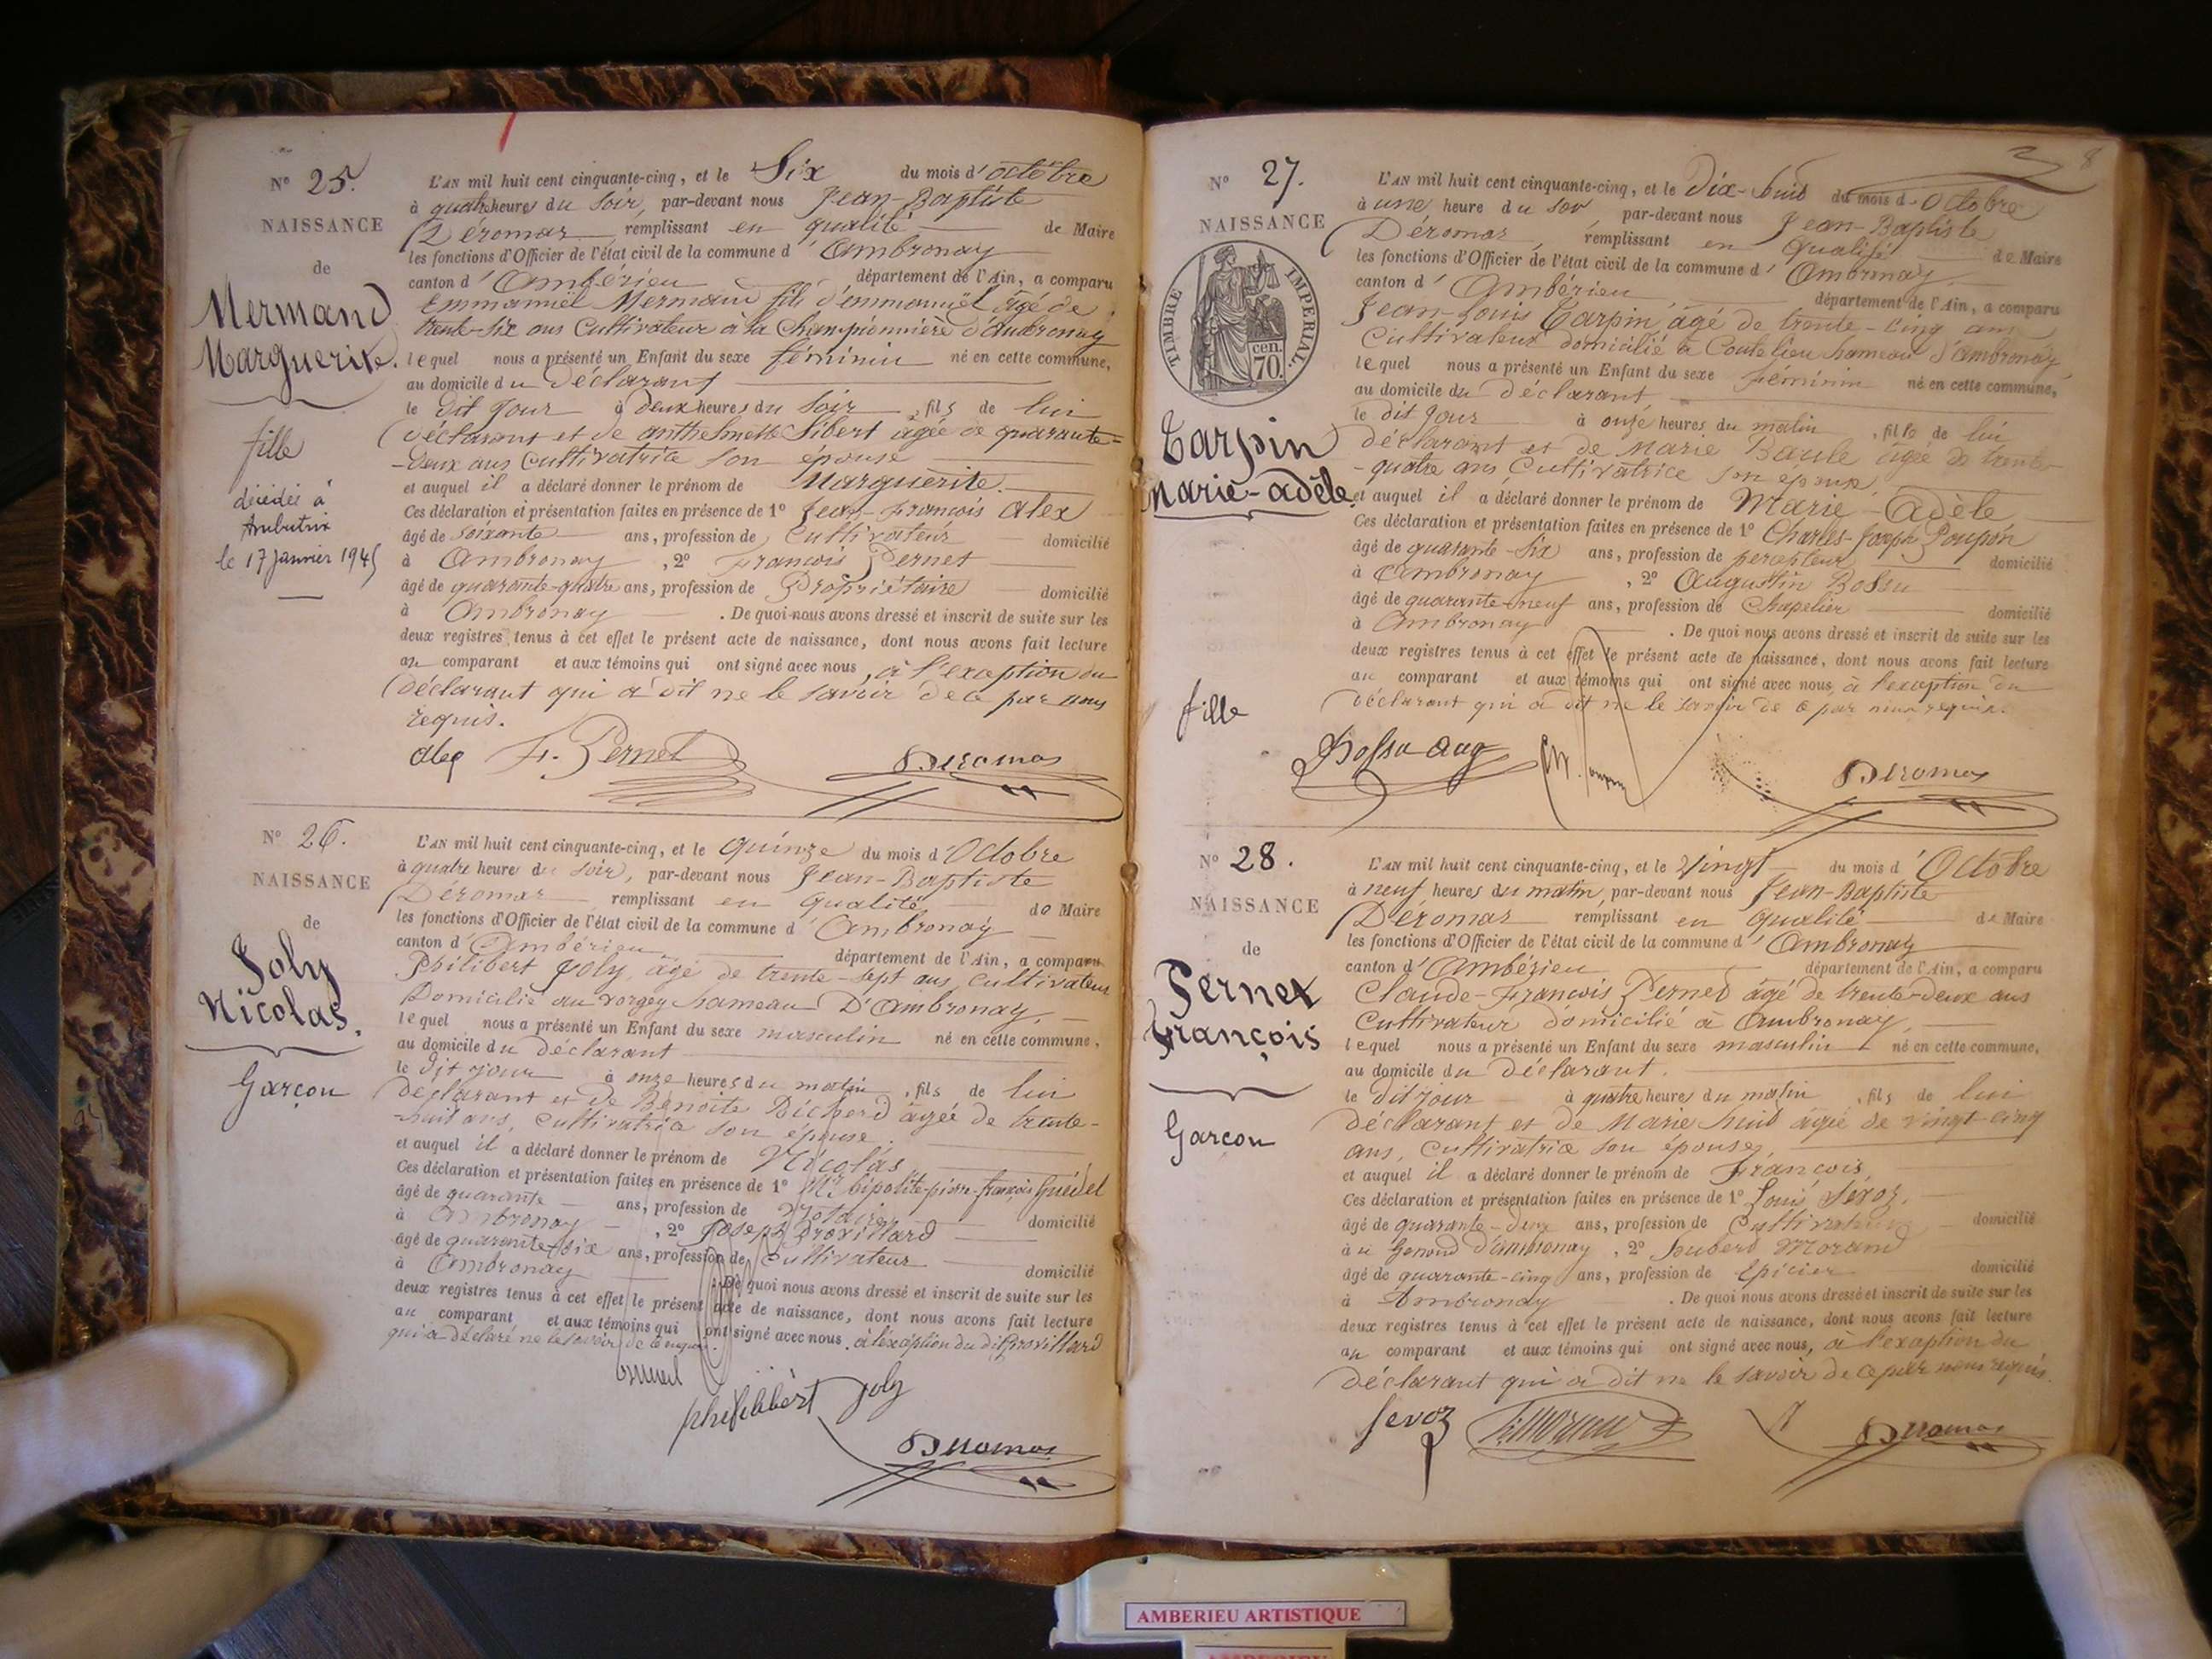 N° 25.
NAISSANCE
de
Mermand
Marguerite.
fille
décédée à
Ambutrix
le 17 Janvier 1945
L'AN mil huit cent cinquante-cinq, et le Six du mois d'octobre
à quatre heures du soir, par-devant nous Jean-Baptiste
Déromas remplissant en qualité de Maire
les fonctions d'Officier de l'état civil de la commune d'Ambronay
canton d'Ambérieu département de l'Ain, a comparu
Emmanuel Mermand fils d'emmanuel âgé de
trente-six ans Cultivateur à la Championnière d'Ambronay
lequel nous a présenté un Enfant du sexe féminin né en cette commune,
au domicile du Déclarant
le dit Jour à Deux heures du Soir, fils de lui
Déclarant et de anthelmette Sibert agée de quarante-
-deux ans Cultivatrice son épouse
et auquel il a déclaré donner le prénom de Marguerite.
Ces déclaration et présentation faites en présence de 1° Jean-François Alex
âgé de soixante ans, profession de Cultivateur domicilié
à Ambronay, 2° François Pernet
âgé de quarante-quatre ans, profession de Propriétaire domicilié
à Ambronay. De quoi nous avons dressé et inscrit de suite sur les
deux registres tenus à cet effet le présent acte de naissance, dont nous avons fait lecture
au comparant et aux témoins qui ont signé avec nous, à l'exception du
Déclarant qui a dit ne le savoir de ce par nous
requis.
alex F. Pernet Deromas
N° 26.
NAISSANCE
de
Joly
Nicolas.
Garçon
L'AN mil huit cent cinquante-cinq, et le Quinze du mois d'Octobre
à quatre heure du soir, par-devant nous Jean-Baptiste
Déromas remplissant en Qualité de Maire
les fonctions d'Officier de l'état civil de la commune d'Ambronay
canton d'Ambérieu département de l'Ain, a comparu
Philibert Joly, âgé de trente-sept ans, Cultivateur
Domicilié au vorgey hameau D'Ambronay,
lequel nous a présenté un Enfant du sexe masculin né en cette commune,
au domicile du Déclarant
le Dit jour à onze heures du matin, fils de lui
Déclarant et de Benoite agée de trente-
-huit ans, Cultivatrice son épouse.
et auquel il a déclaré donner le prénom de Nicolas
Ces déclaration et présentation faites en présence de 1° Mr hipolite-pierre-françois Guédel
âgé de quarante ans, profession de Notaire domicilié
à Ambronay, 2° Joseph Brovillard
âgé de quarante-six ans, profession de Cultivateur domicilié
à Ambronay. De quoi nous avons dressé et inscrit de suite sur les
deux registres tenus à cet effet le présent acte de naissance, dont nous avons fait lecture
au comparant et aux témoins qui ont signé avec nous, à l'exception du dit Brovillard
qui a déclaré ne le savoir de ce requis.
philibert joly
Deromas
8
N° 27.
NAISSANCE
TIMBRE IMPERIAL.
70. cen
Tarpin
Marie-adèle.
fille
L'AN mil huit cent cinquante-cinq, et le Dix-huit du mois d'Octobre
à une heure du soir, par-devant nous Jean-Baptiste
Déromas, remplissant en Qualité de Maire
les fonctions d'Officier de l'état civil de la commune d'Ambronay
canton d'Ambérieu département de l'Ain, a comparu
Jean-Louis Tarpin, âgé de trente-cinq ans
Cultivateur domicilié à Coutelieu hameau d'Ambronay,
lequel nous a présenté un Enfant du sexe féminin né en cette commune,
au domicile du Déclarant
le dit Jour à onze heures du matin, fille de lui
Déclarant et de Marie Baule agée de trente-
-quatre ans Cultivatrice son épouse,
et auquel il a déclaré donner le prénom de Marie-Adèle
Ces déclaration et présentation faites en présence de 1° Charles-Joseph Poupon
âgé de quarante-six ans, profession de percepteur domicilié
à Ambronay, 2° Augustin Bossu
âgé de quarante-neuf ans, profession de Chapelier domicilié
à Ambronay. De quoi nous avons dressé et inscrit de suite sur les
deux registres tenus à cet effet le présent acte de naissance, dont nous avons fait lecture
au comparant et aux témoins qui ont signé avec nous, à l'exception du
Déclarant qui a dit ne le savoir de ce par nous requis.
Bossu aug Deromas
N° 28.
NAISSANCE
de
Pernet
François
Garçon
L'AN mil huit cent cinquante-cinq, et le Vingt du mois d'Octobre
à neuf heures du matin, par-devant nous Jean-Baptiste
Déromas remplissant en qualité de Maire
les fonctions d'Officier de l'état civil de la commune d'Ambronay
canton d'Ambérieu département de l'Ain, a comparu
Claude-François Pernet âgé de trente-deux ans
Cultivateur domicilié à Ambronay,
lequel nous a présenté un Enfant du sexe masculin né en cette commune,
au domicile du Déclarant.
le dit jour à quatre heures du matin, fils de lui
Déclarant et de Marie huit agée de vingt-cinq
ans, Cultivatrice son épouse,
et auquel il a déclaré donner le prénom de François,
Ces déclaration et présentation faites en présence de 1° Louis Sévoz,
âgé de quarante-deux ans, profession de Cultivateur domicilié
à au Genoud d'Ambronay, 2° hubert Morand
âgé de quarante-cinq ans, profession de Epicier domicilié
à Ambronay. De quoi nous avons dressé et inscrit de suite sur les
deux registres tenus à cet effet le présent acte de naissance, dont nous avons fait lecture
au comparant et aux témoins qui ont signé avec nous, à l'exception du
Déclarant qui a dit ne le savoir de ce par nous requis.
Sevoz Deromas
AMBERIEU ARTISTIQUE